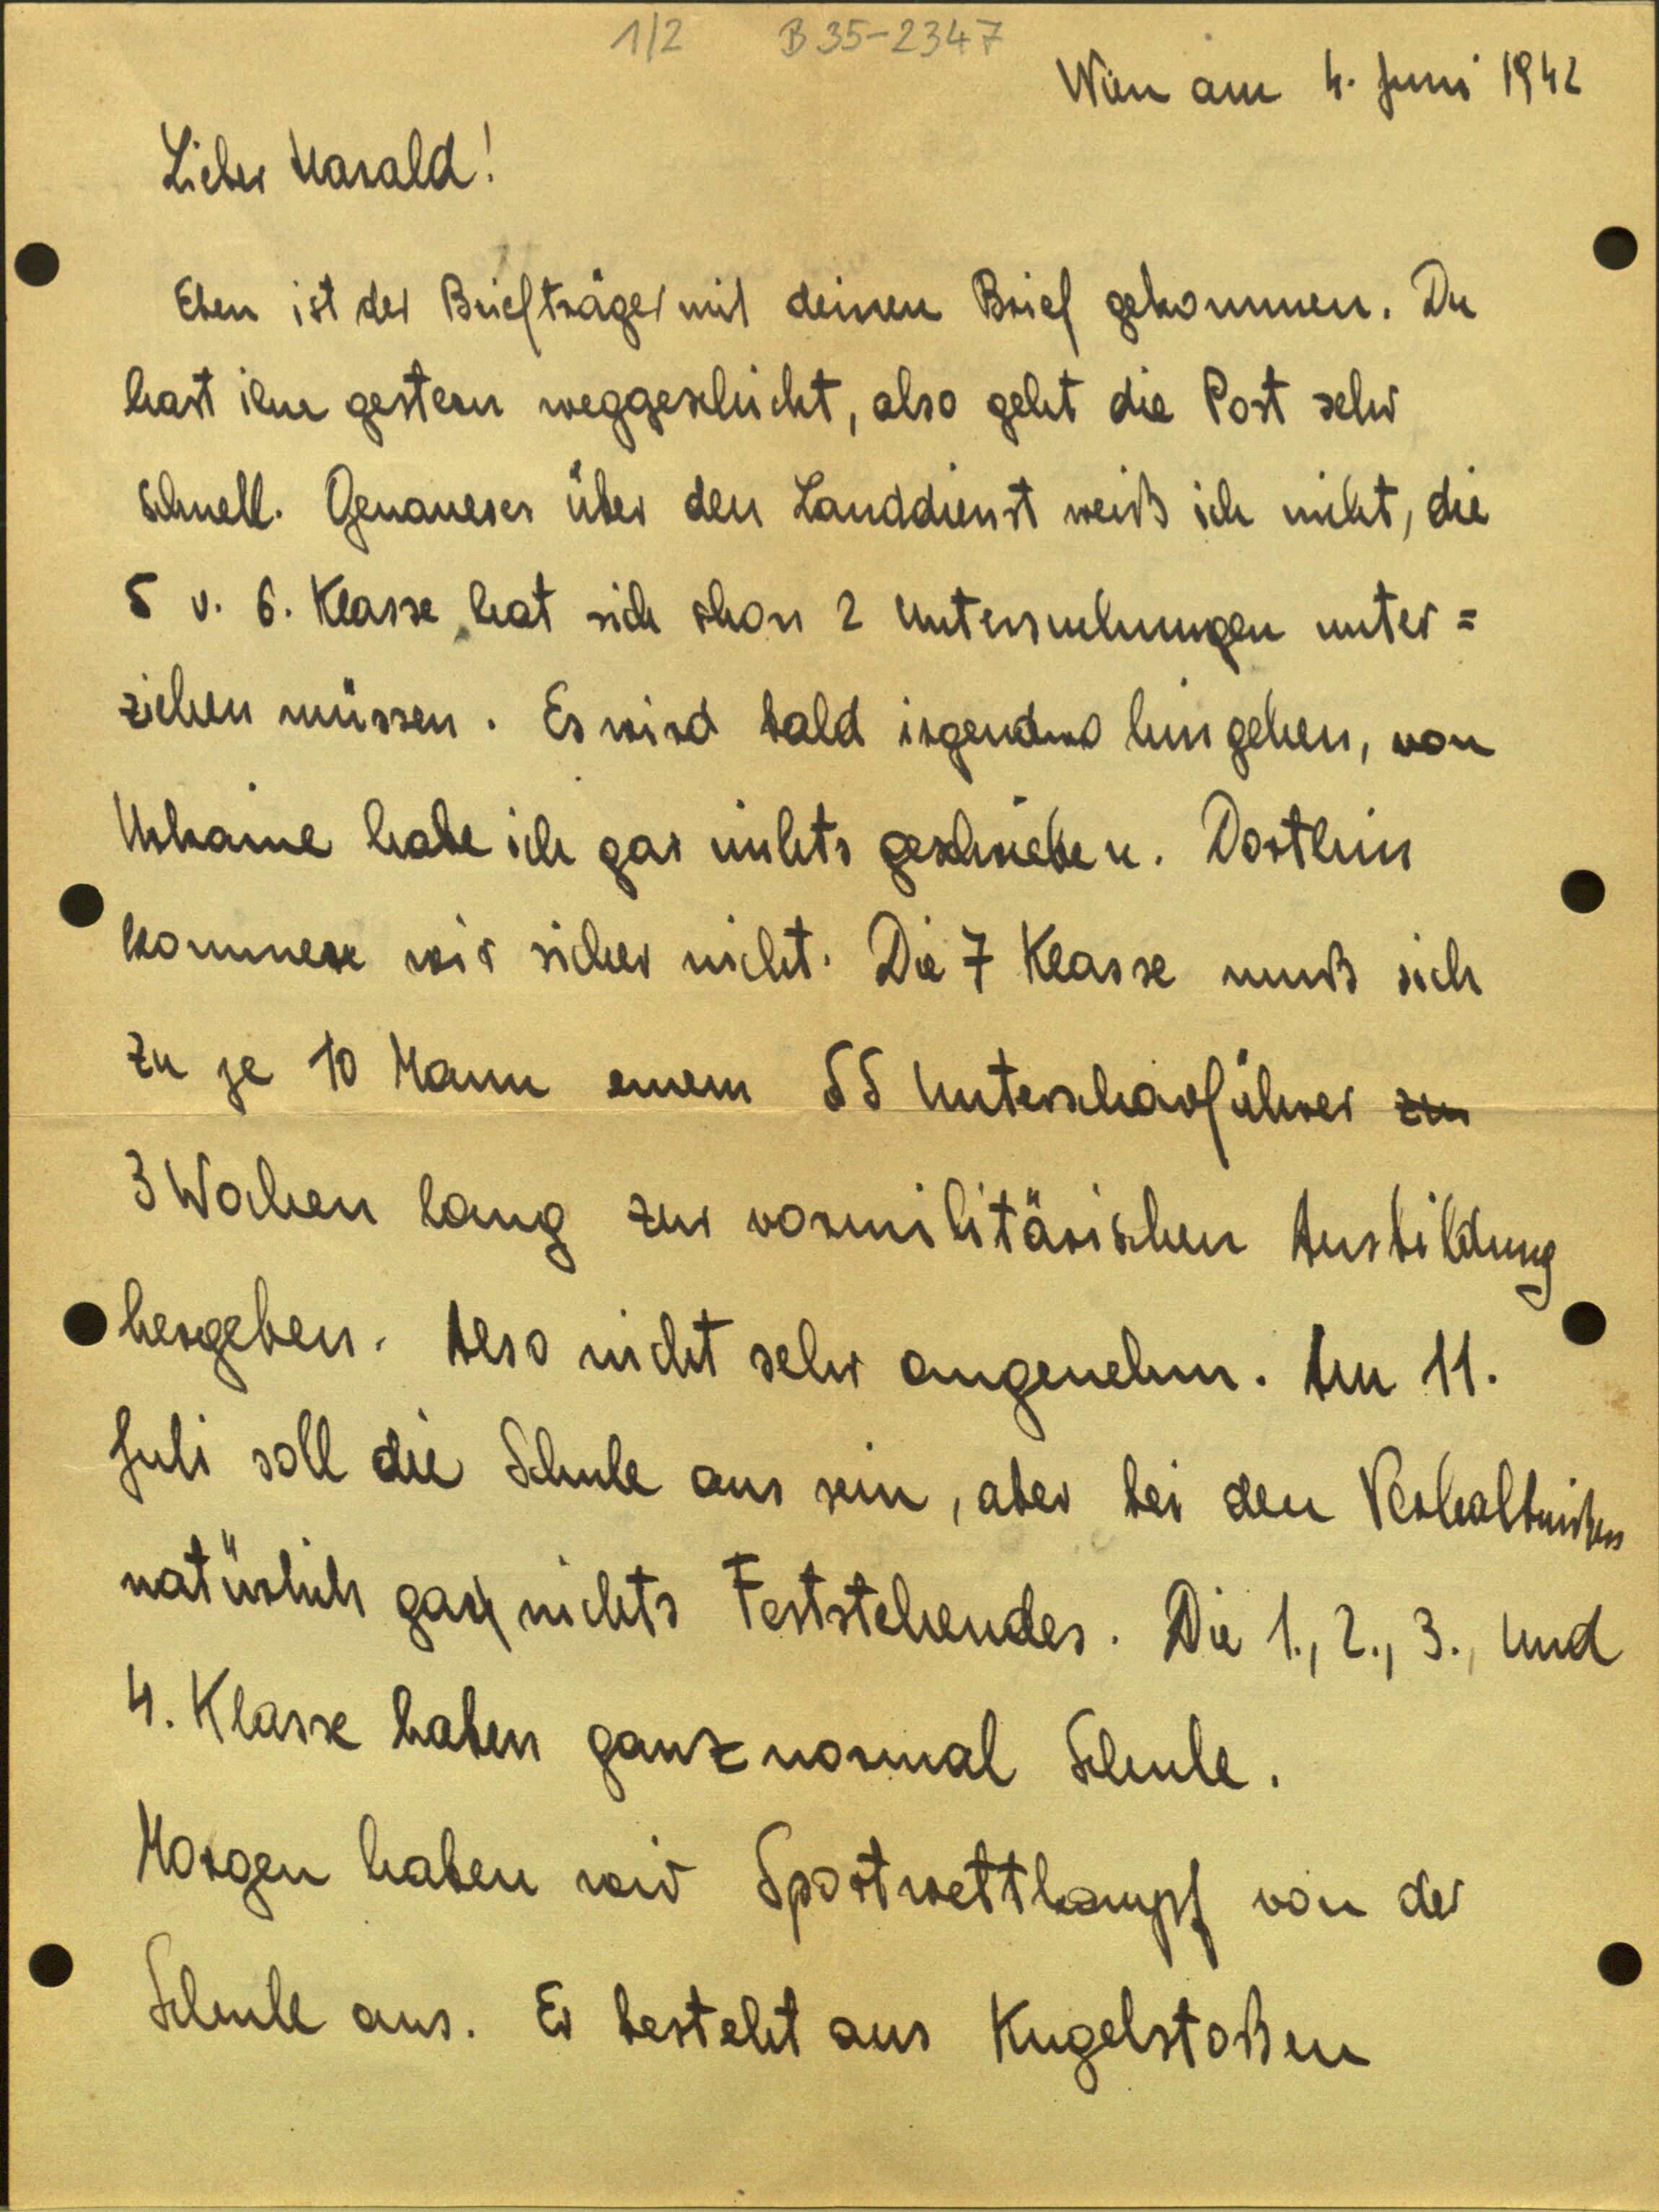 1/2 B 35-2347
Wien am 4. Juni 1942
Lieber Harald!
Eben ist der Briefträger mit deinen Brief gekommen. Du
hast ihn gestern weggeschickt, also geht die Post sehr
schnell. Genaueres über den Landdienst weiß ich nicht, die
5 u. 6. Klasse hat sich schon 2 Untersuchungen unter=
ziehen müssen. Es wird bald irgendwo hingehen, von
Ukraine habe ich gar nichts geschrieben. Dorthin
kommen wir sicher nicht. Die 7 Klasse muß sich
zu je 10 Mann einem SS Unterscharführer zu
3 Wochen lang zur vormilitärischen Ausbildung
hergeben. Also nicht sehr angenehm. Am 11.
Juli soll die Schule aus sein, aber bei den Verhaltnißen
natürlich gar nichts Feststehendes. Die 1., 2., 3., und
4. Klasse haben ganz normal Schule.
Morgen haben wir Sportwettkampf von der
Schule aus. Er besteht aus Kugelstoßen